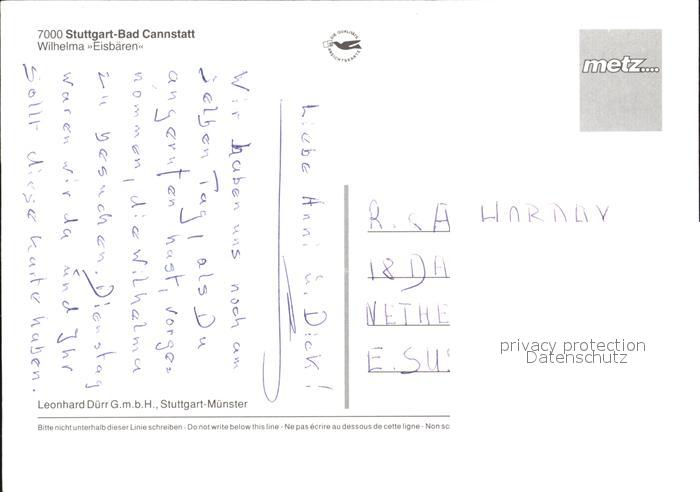 7000 Stuttgart-Bad Cannstatt
Wilhelma »Eisbären«
metz....
Liebe Anni u. Dick!
Wir haben uns noch am
selben Tag, als Du
angerufen hast, vorge=
nommen, die Wilhelma
zu besuchen. Dienstag
waren wir da und Ihr
sollt diese Karte haben.
R. & A
18 DA
NETHE
E. SUS
privacy protection
Datenschutz
Leonhard Dürr G.m.b.H., Stuttgart-Münster
Bitte nicht unterhalb dieser Linie schreiben - Do not write below this line - Ne pas écrire au dessous de cette ligne - Non sc